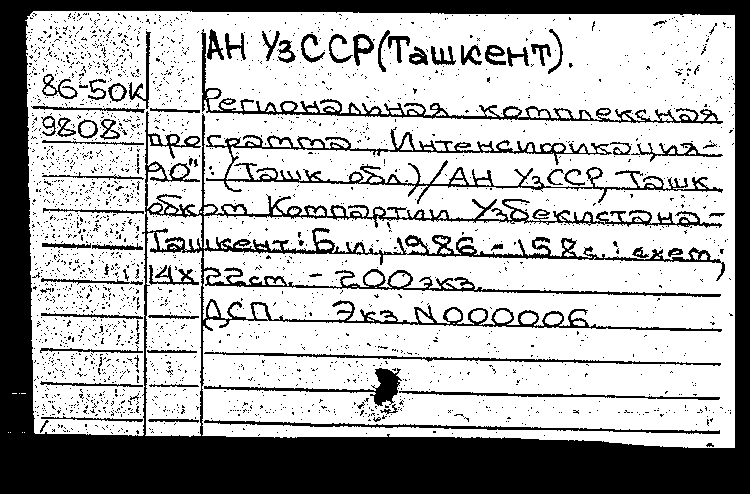 АН УзССР(Ташкент).
86-50к
Региональная комплексная
9808 программа „Интенсификация-
90": (Ташк. обл.)/АН УзССР, Ташк.
обком Компартии Узбекистана.-
Ташкент: Б.и., 1986.- 158с.: схем;
14x22см. - 200экз.
ДСП. Экз.N000006.